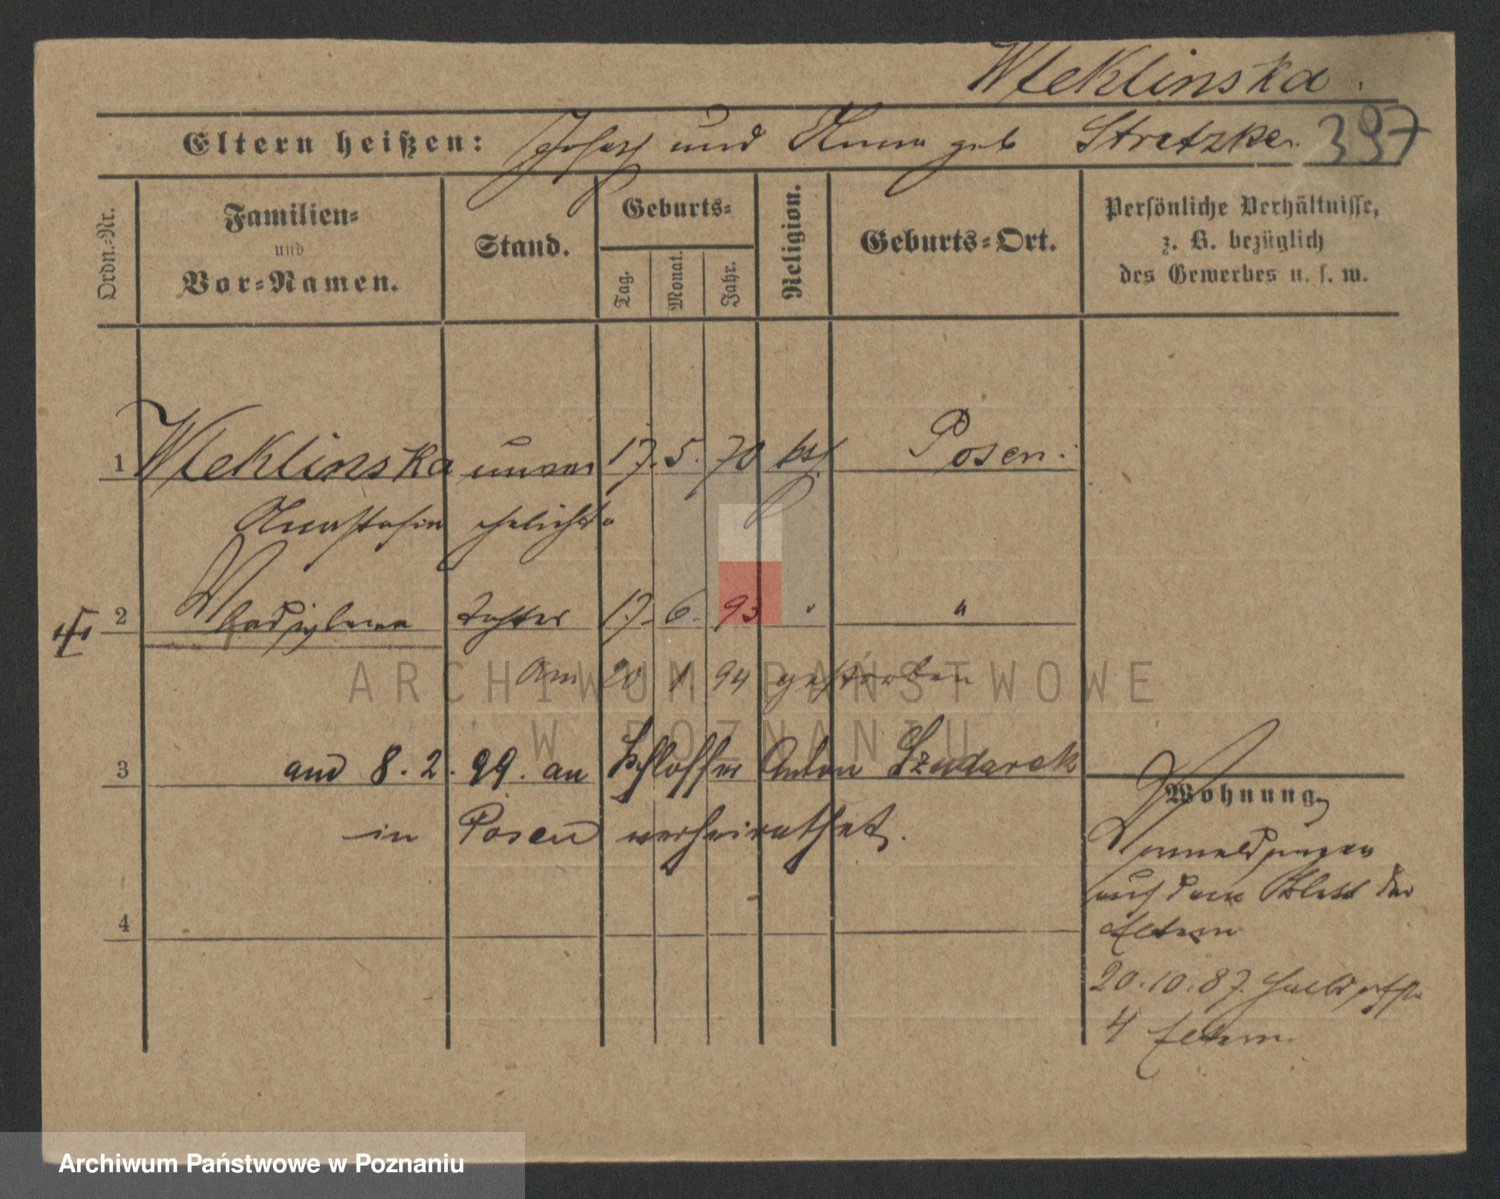 Wleklinska.
Eltern heißen: Joseph und Anna geb Stretzke. 397
Ordn.-Nr.
Familien- und Vor-Namen.
Stand.
Geburts-
Tag. Monat. Jahr.
Religion.
Geburts-Ort.
Persönliche Verhältnisse, z. B. bezüglich des Gewerbes u. s. w.
1 Wleklinska unver 17. 5. 70 kath Posen.
Anastasia ehelichte
2 Wladyslawa Tochter 17. 6. 93 " "
Am 20 1 94 gestorben
3 am 8. 2. 99. an Schlosser Anton Szudarek
in Posen verheirathet.
4
Wohnung
Anmeldungen
auf dem Blatt der
Eltern
20.10.87. Halbdorfstr
4 Eltern
ARCHIWUM PAŃSTWOWE
W POZNANIU
Archiwum Państwowe w Poznaniu